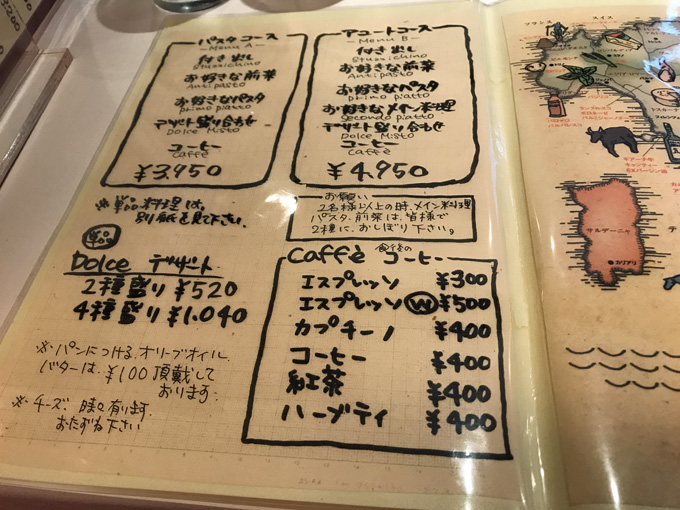 パスタコース
-Menu A-
付き出し
Stuzzichino
お好きな前菜
Antipasto
お好きなパスタ
primo piatto
デザート盛り合わせ
Dolce Misto
コーヒー
Caffè
¥3,950
アコートコース
-Menu B-
付き出し
Stuzzichino
お好きな前菜
Antipasto
お好きなパスタ
primo piatto
お好きなメイン料理
Secondo piatto
デザート盛り合わせ
Dolce Misto
コーヒー
Caffè
¥4,950
※単品料理は、
別紙を見て下さい。
お願い
2名様以上の時、メイン料理
パスタ、前菜は、皆様で
2種に、おしぼり下さい。
単品
Dolce デザート
2種盛り ¥520
4種盛り ¥1,040
※パンにつける、オリーブオイル、
バターは、¥100頂戴して
おります。
※チーズ、時々有ります。
おたずね下さい
Caffè 食後の コーヒー
エスプレッソ ¥300
エスプレッソ W ¥500
カプチーノ ¥400
コーヒー ¥400
紅茶 ¥400
ハーブティ ¥400
フランス
スイス
サルデーニャ
カリアリ